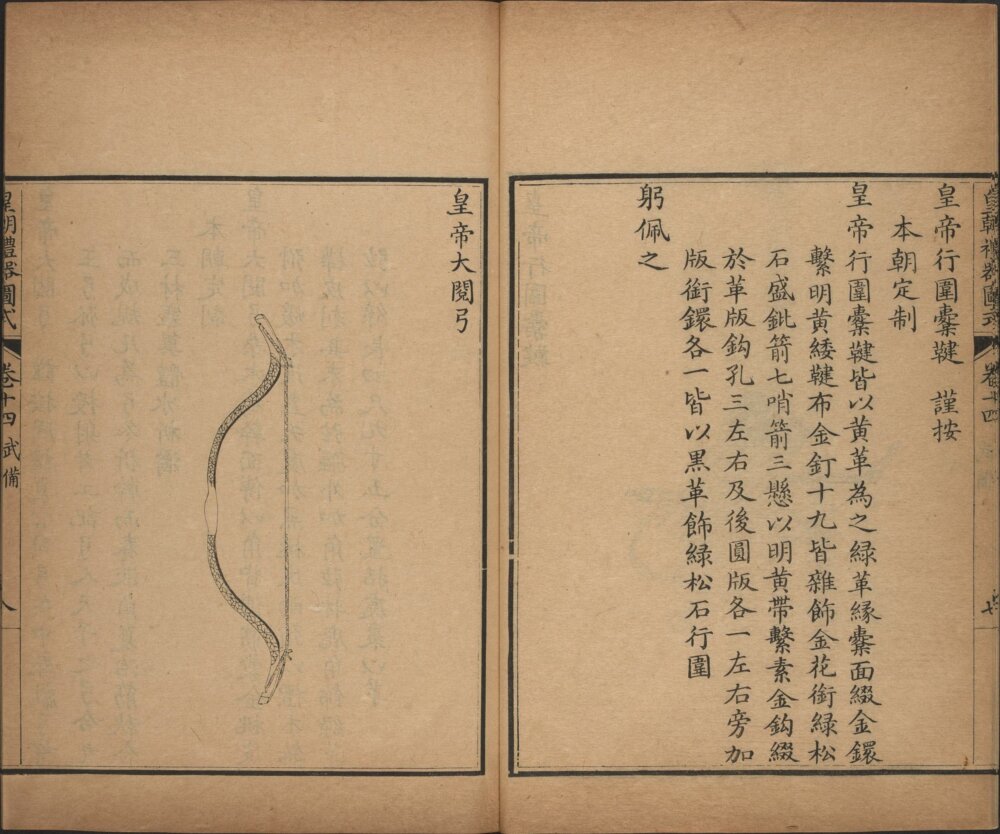 皇朝禮器圖式 卷十四 七
皇帝行圍櫜鞬 謹按
本朝定制
皇帝行圍櫜鞬皆以黄革為之緑革緣櫜面綴金鐶
繫明黄緌鞬布金釘十九皆雜飾金花銜緑松
石盛鈚箭七哨箭三懸以明黄帶繫素金鈎綴
於革版鈎孔三左右及後圓版各一左右旁加
版銜鐶各一皆以黑革飾緑松石行圍
躬佩之
皇帝大閱弓
皇朝禮器圖式 卷十四 武備 八